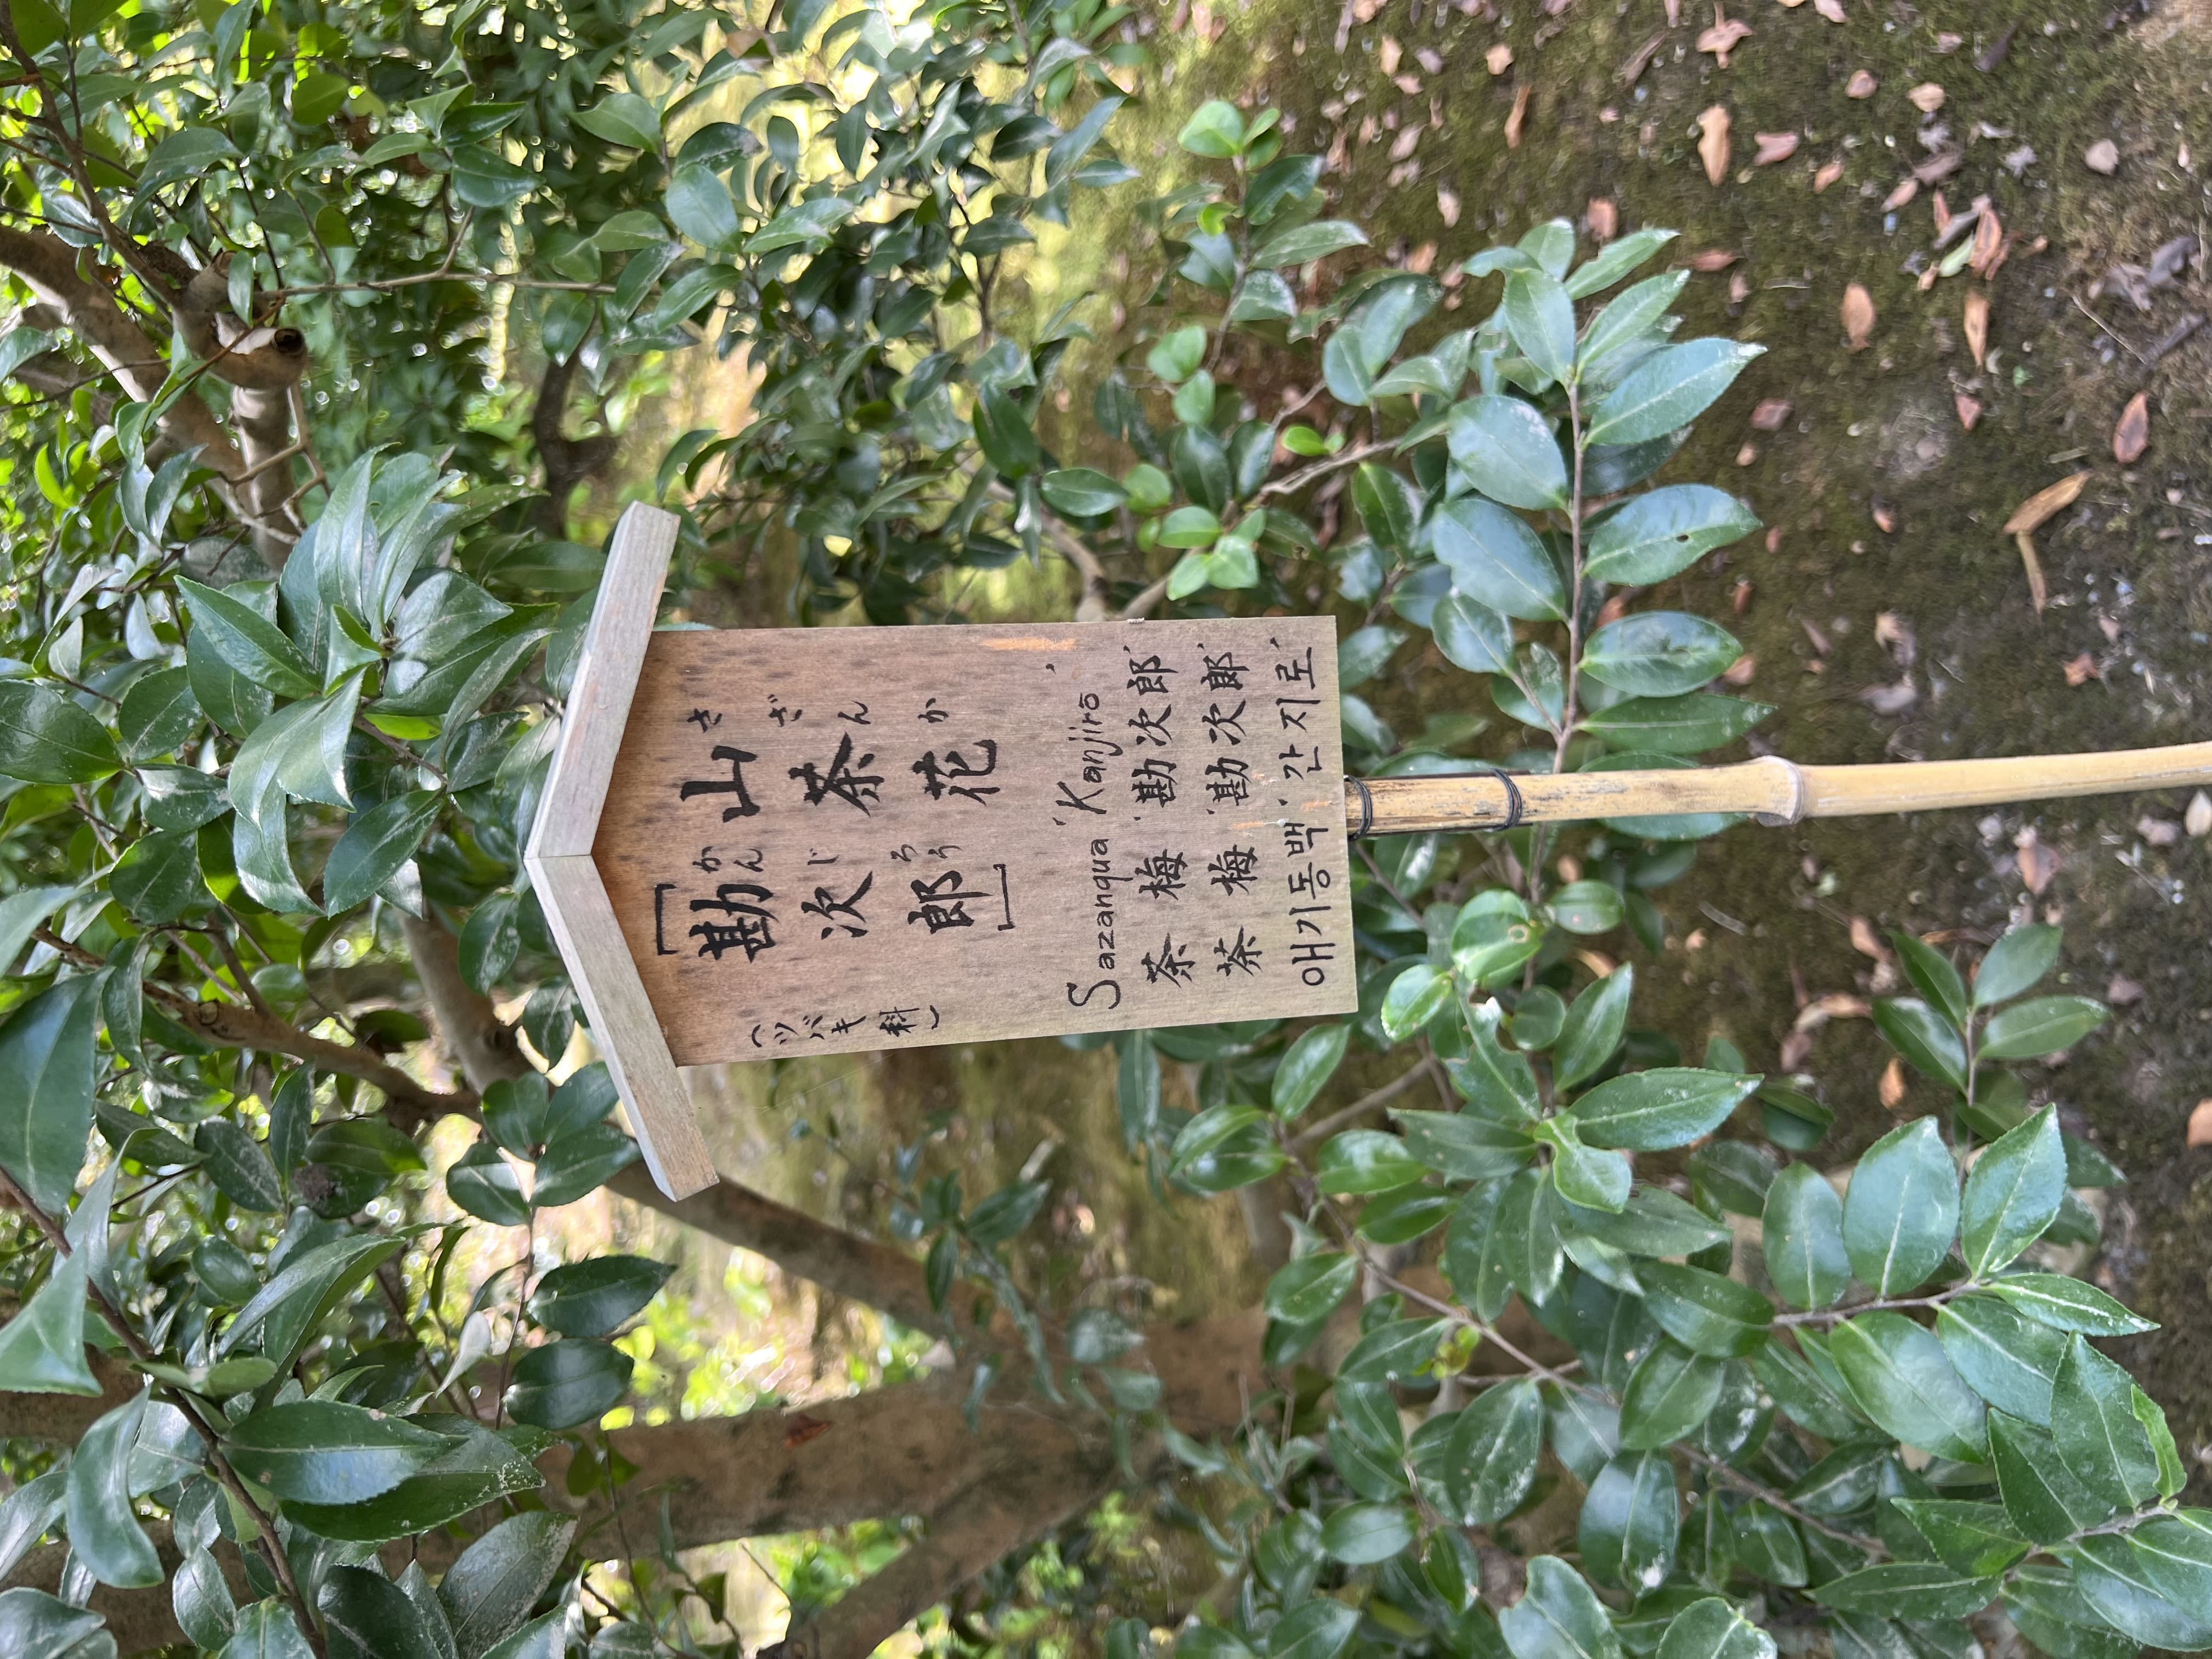 山茶花
さざんか
[勘次郎]
かんじろう
(ツバキ科)
Sazanqua 'Kanjirō'
茶梅 '勘次郎'
茶梅 '勘次郎'
애기동백 '간지로'